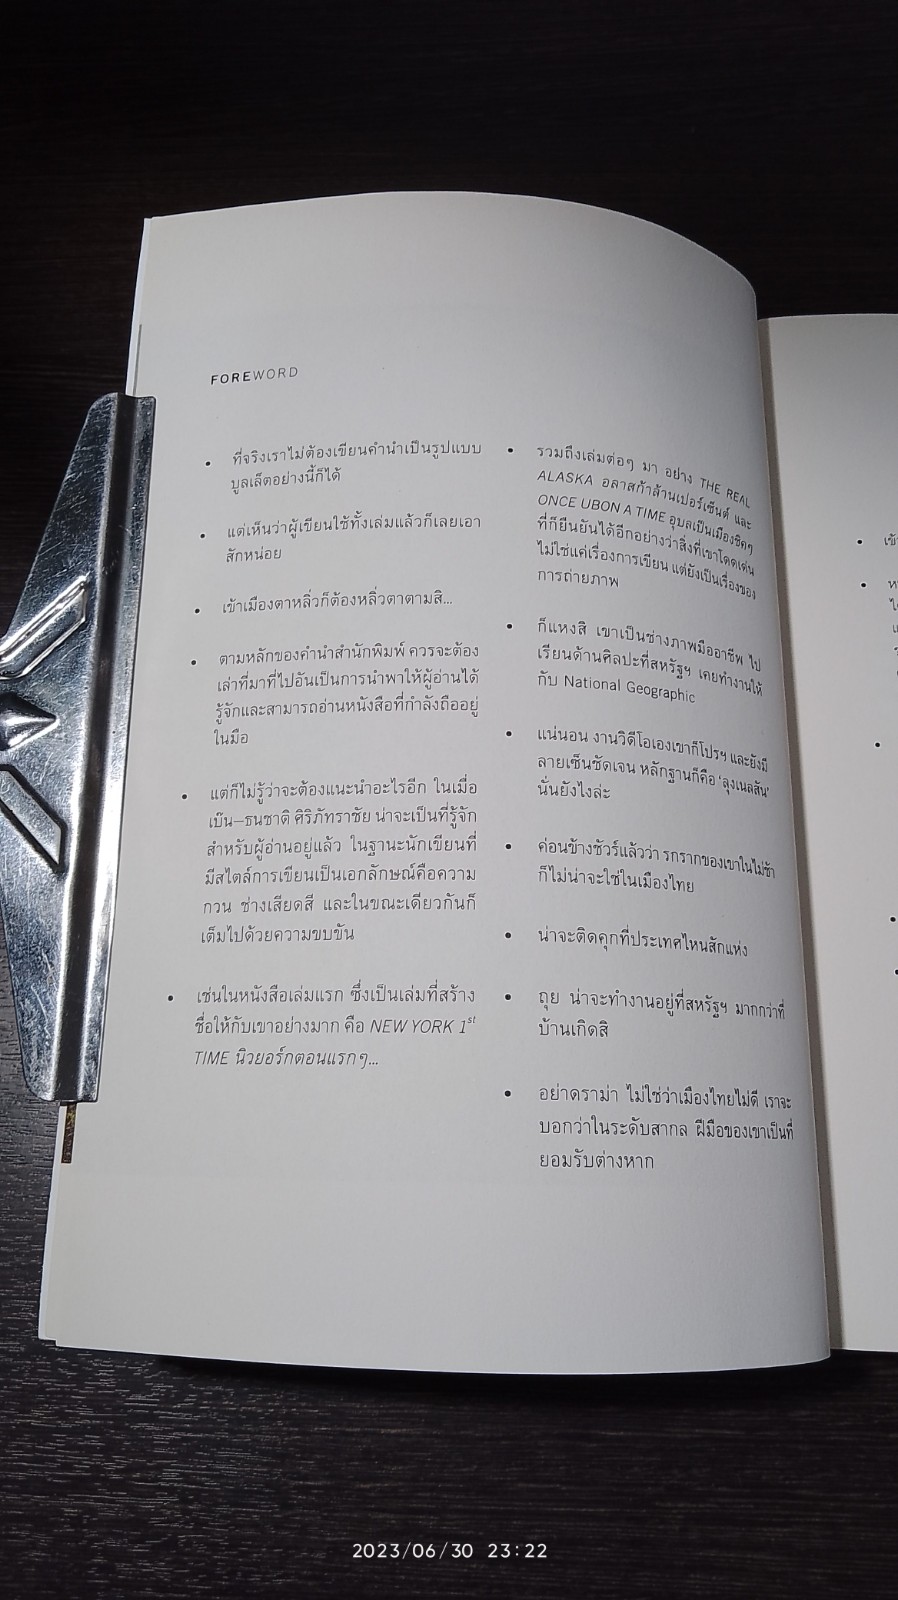 FOREWORD
• ที่จริงเราไม่ต้องเขียนคำนำเป็นรูปแบบ
บูลเล็ตอย่างนี้ก็ได้
• แต่เห็นว่าผู้เขียนใช้ทั้งเล่มแล้วก็เลยเอา
สักหน่อย
• เข้าเมืองตาหลิ่วก็ต้องหลิ่วตาตามสิ...
• ตามหลักของคำนำสำนักพิมพ์ ควรจะต้อง
เล่าที่มาที่ไปอันเป็นการนำพาให้ผู้อ่านได้
รู้จักและสามารถอ่านหนังสือที่กำลังถืออยู่
ในมือ
• แต่ก็ไม่รู้ว่าจะต้องแนะนำอะไรอีก ในเมื่อ
เบ๊น–ธนชาติ ศิริภัทราชัย น่าจะเป็นที่รู้จัก
สำหรับผู้อ่านอยู่แล้ว ในฐานะนักเขียนที่
มีสไตล์การเขียนเป็นเอกลักษณ์คือความ
กวน ช่างเสียดสี และในขณะเดียวกันก็
เต็มไปด้วยความขบขัน
• เช่นในหนังสือเล่มแรก ซึ่งเป็นเล่มที่สร้าง
ชื่อให้กับเขาอย่างมาก คือ NEW YORK 1st
TIME นิวยอร์กตอนแรกๆ...
• รวมถึงเล่มต่อๆ มา อย่าง THE REAL
ALASKA อลาสก้าล้านเปอร์เซ็นต์ และ
ONCE UBON A TIME อุบลเป็นเมืองชิคๆ
ที่ก็ยืนยันได้อีกอย่างว่าสิ่งที่เขาโดดเด่น
ไม่ใช่แค่เรื่องการเขียน แต่ยังเป็นเรื่องของ
การถ่ายภาพ
• ก็แหงสิ เขาเป็นช่างภาพมืออาชีพ ไป
เรียนด้านศิลปะที่สหรัฐฯ เคยทำงานให้
กับ National Geographic
• แน่นอน งานวิดีโอเองเขาก็โปรฯ และยังมี
ลายเซ็นชัดเจน หลักฐานก็คือ ‘ลุงเนลสัน’
นั่นยังไงล่ะ
• ค่อนข้างชัวร์แล้วว่า รกรากของเขาในไม่ช้า
ก็ไม่น่าจะใช่ในเมืองไทย
• น่าจะติดคุกที่ประเทศไหนสักแห่ง
• ถุย น่าจะทำงานอยู่ที่สหรัฐฯ มากกว่าที่
บ้านเกิดสิ
• อย่าดราม่า ไม่ใช่ว่าเมืองไทยไม่ดี เราจะ
บอกว่าในระดับสากล ฝีมือของเขาเป็นที่
ยอมรับต่างหาก
2023/06/30 23:22